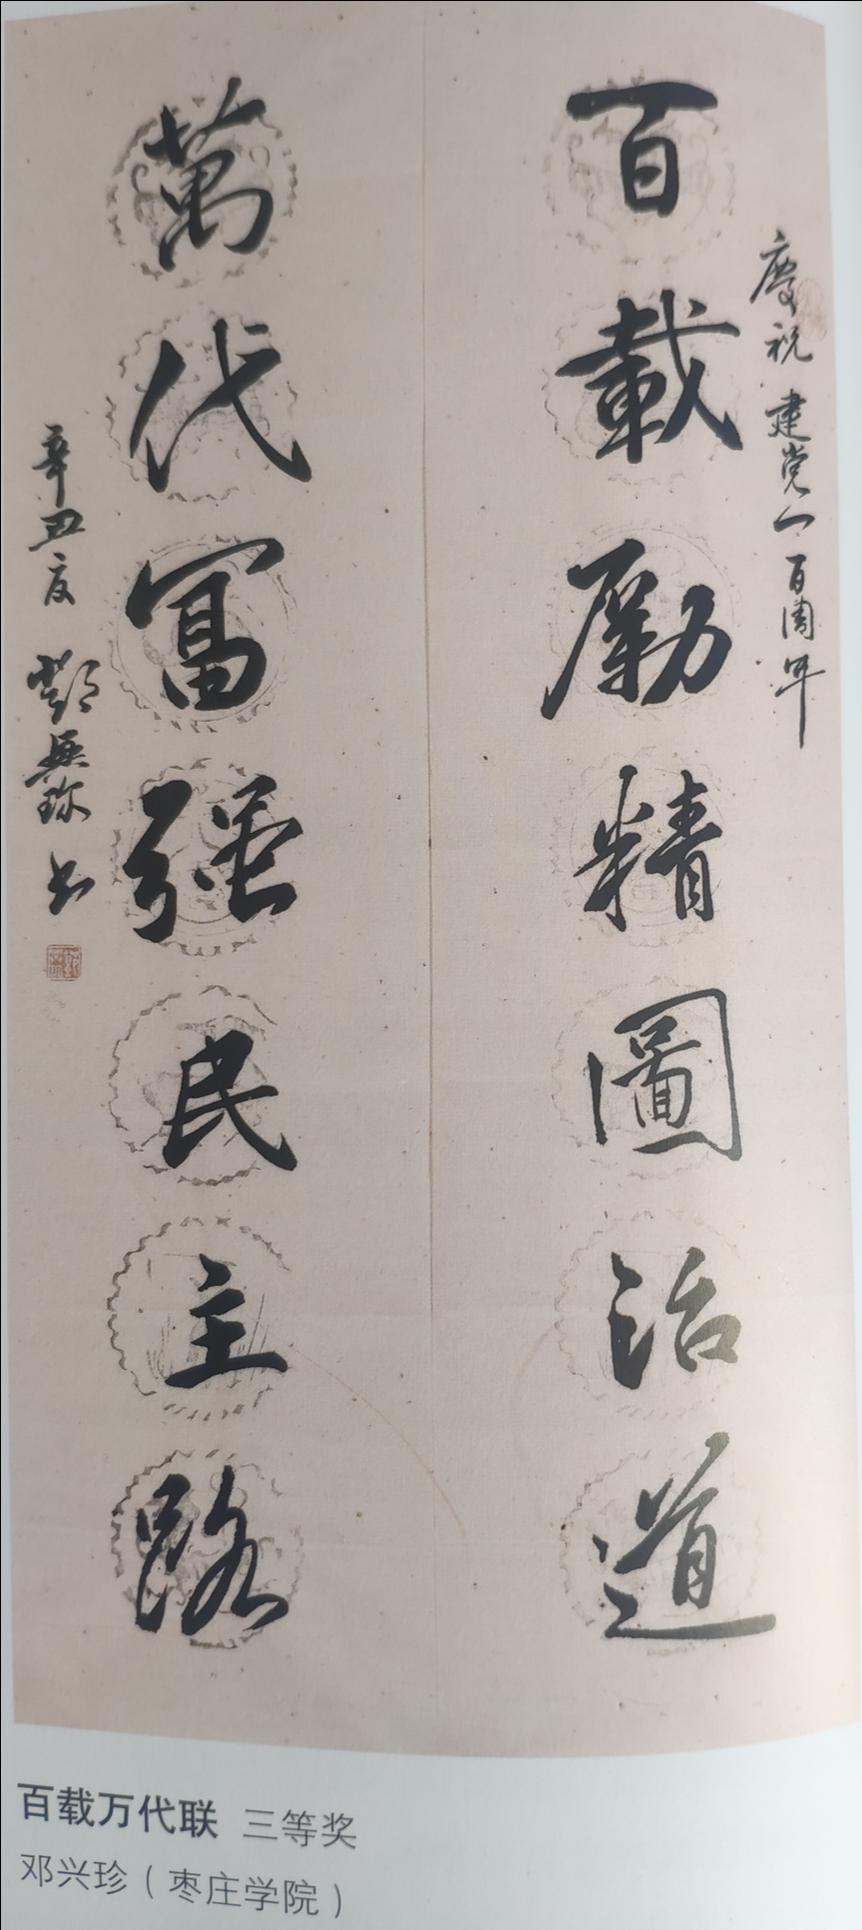 慶祝建党一百周年
百載勵精圖治道
萬代冨强民主路
辛丑夏 鄧興珍书
百载万代联 三等奖
邓兴珍（枣庄学院）